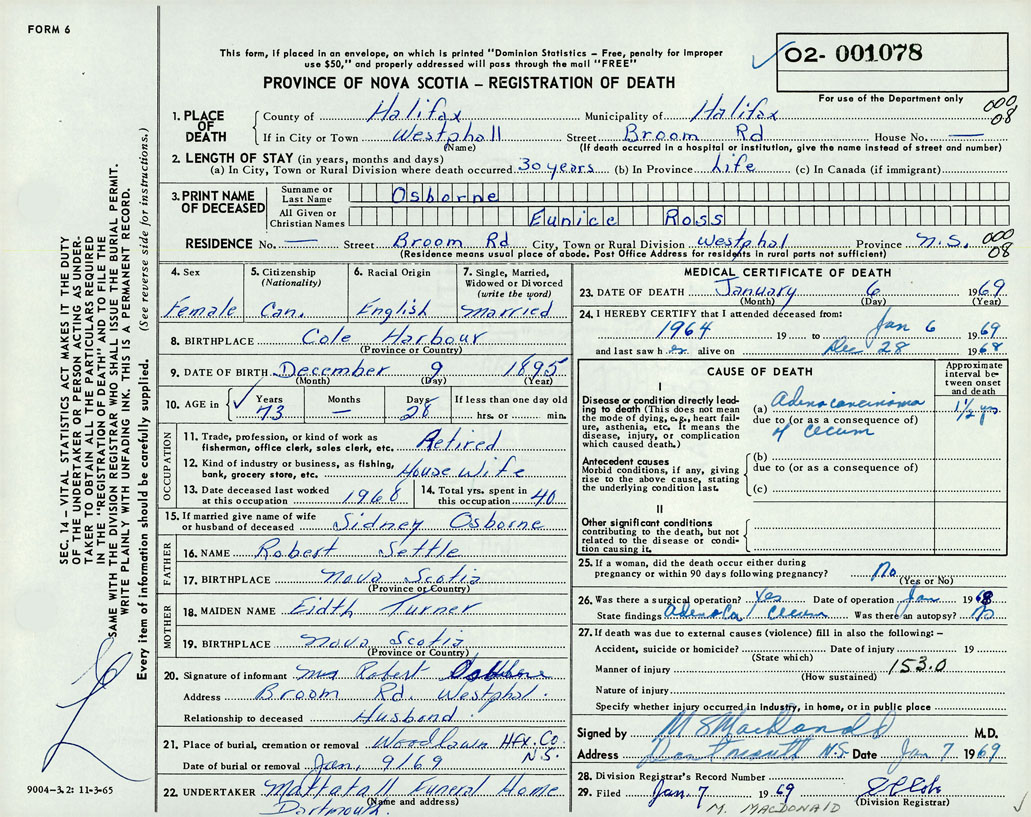 FORM 6
This form, if placed in an envelope, on which is printed "Dominion Statistics – Free, penalty for improper
use $50," and properly addressed will pass through the mail "FREE"
O2- 001078
PROVINCE OF NOVA SCOTIA – REGISTRATION OF DEATH
For use of the Department only
000
08
1. PLACE OF DEATH
County of Halifax Municipality of Halifax
If in City or Town Westphall Street Broom Rd House No. —
(Name) (If death occurred in a hospital or institution, give the name instead of street and number)
2. LENGTH OF STAY (in years, months and days)
(a) In City, Town or Rural Division where death occurred 30 years (b) In Province Life (c) In Canada (if immigrant)
3. PRINT NAME OF DECEASED
Surname or Last Name Osborne
All Given or Christian Names Eunice Ross
RESIDENCE No. — Street Broom Rd City, Town or Rural Division Westphal Province N.S.
000
08
(Residence means usual place of abode. Post Office Address for residents in rural parts not sufficient)
4. Sex
Female
5. Citizenship
(Nationality)
Can.
6. Racial Origin
English
7. Single, Married,
Widowed or Divorced
(write the word)
Married
8. BIRTHPLACE Cole Harbour
(Province or Country)
9. DATE OF BIRTH December 9 1895
(Month) (Day) (Year)
10. AGE in Years Months Days If less than one day old
73 — 28 hrs. or min.
OCCUPATION
11. Trade, profession, or kind of work as
fisherman, office clerk, sales clerk, etc. Retired
12. Kind of industry or business, as fishing,
bank, grocery store, etc. House Wife
13. Date deceased last worked
at this occupation 1968
14. Total yrs. spent in
this occupation 40
15. If married give name of wife
or husband of deceased Sidney Osborne
FATHER
16. NAME Robert Settle
17. BIRTHPLACE Nova Scotia
(Province or Country)
MOTHER
18. MAIDEN NAME Eidth Turner
19. BIRTHPLACE Nova Scotia
(Province or Country)
20. Signature of informant Mrs Robert Osborne
Address Broom Rd. Westphal.
Relationship to deceased Husbond
21. Place of burial, cremation or removal Woodlawn Hfx. Co
N.S.
Date of burial or removal Jan, 9/69
22. UNDERTAKER Mattatall Funeral Home
(Name and address)
Dartmouth.
MEDICAL CERTIFICATE OF DEATH
23. DATE OF DEATH January 6 1969
(Month) (Day) (Year)
24. I HEREBY CERTIFY that I attended deceased from:
1964 19 to Jan 6 1969
and last saw her alive on Dec 28 1968
CAUSE OF DEATH
Approximate
interval be-
tween onset
and death
I
Disease or condition directly lead-
ing to death (This does not mean
the mode of dying, e.g., heart fail-
ure, asthenia, etc. It means the
disease, injury, or complication
which caused death.)
(a) Adenocarcinoma
due to (or as a consequence of)
of cecum
1½ yrs.
Antecedent causes
Morbid conditions, if any, giving
rise to the above cause, stating
the underlying condition last.
(b)
due to (or as a consequence of)
(c)
II
Other significant conditions
contributing to the death, but not
related to the disease or condi-
tion causing it.
25. If a woman, did the death occur either during
pregnancy or within 90 days following pregnancy? No
(Yes or No)
26. Was there a surgical operation? Yes Date of operation Jan 1968
State findings AdenoCa / Cecum Was there an autopsy?
27. If death was due to external causes (violence) fill in also the following: –
Accident, suicide or homicide? Date of injury 19
(State which)
Manner of injury 153.0
(How sustained)
Nature of injury
Specify whether injury occurred in Industry, in home, or in public place
Signed by M S MacDonald M.D.
Address Dartmouth N.S. Date Jan 7 1969
28. Division Registrar's Record Number
29. Filed Jan. 7 1969
(Division Registrar)
M. MACDONALD
SEC. 14 – VITAL STATISTICS ACT MAKES IT THE DUTY
OF THE UNDERTAKER OR PERSON ACTING AS UNDER-
TAKER TO OBTAIN ALL THE PARTICULARS REQUIRED
IN THE "REGISTRATION OF DEATH" AND TO FILE THE
SAME WITH THE DIVISION REGISTRAR WHO SHALL ISSUE THE BURIAL PERMIT.
WRITE PLAINLY WITH UNFADING INK. THIS IS A PERMANENT RECORD.
Every item of information should be carefully supplied. (See reverse side for instructions.)
9004-3.2: 11-3-65